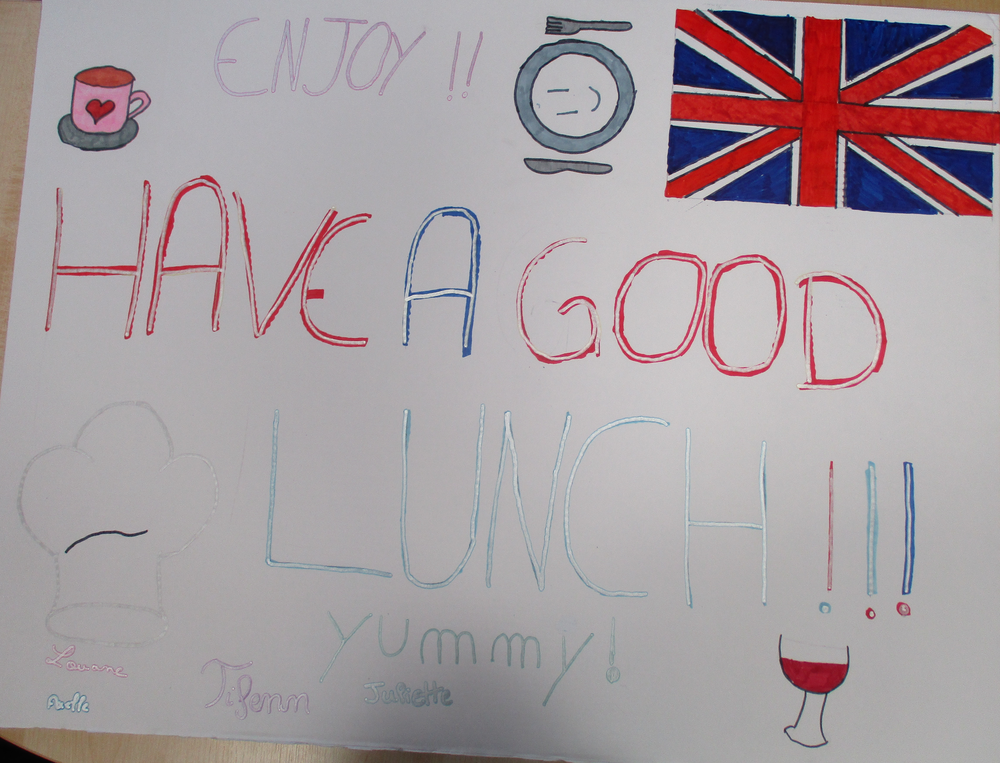 ENJOY !!
HAVE A GOOD
LUNCH !!!
Yummy!
Louane
Tifenn
Juliette